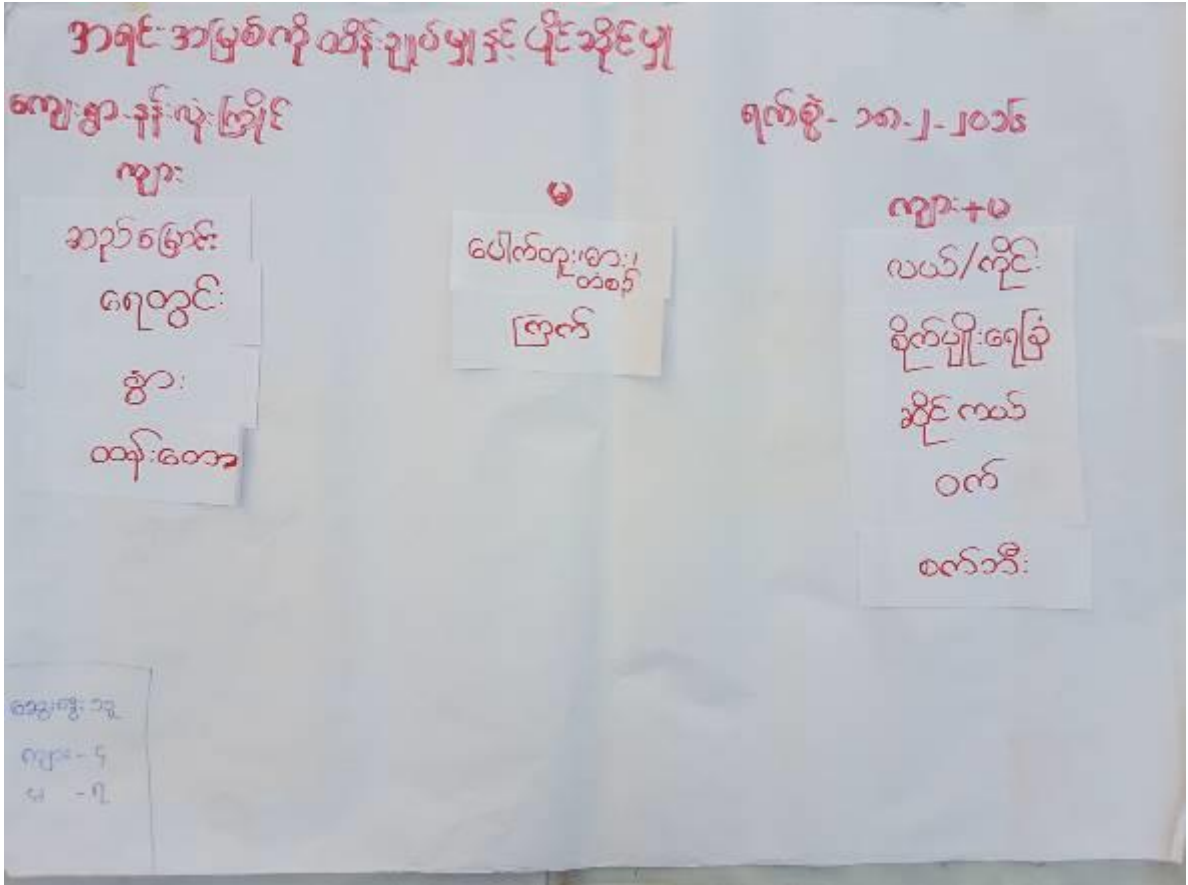 အရင်းအမြစ်ကို ထိန်းချုပ်မှုနှင့် ပိုင်ဆိုင်မှု
ကျေးရွာ-နန်းလုံးကြိုင်
ရက်စွဲ- ၁၈-၂-၂၀၁၆
ကျား
ဆည်မြောင်း
ရေတွင်း
နွား
ထန်းတော
မ
ပေါက်တူး၊ဓား၊
တံစဉ်
ကြက်
ကျား+မ
လယ်/ကိုင်း
စိုက်ပျိုးရေခြံ
ဆိုင်ကယ်
ဝက်
စက်ဘီး
ဆွေးနွေးသူ
ကျား - ၄
မ - ၇